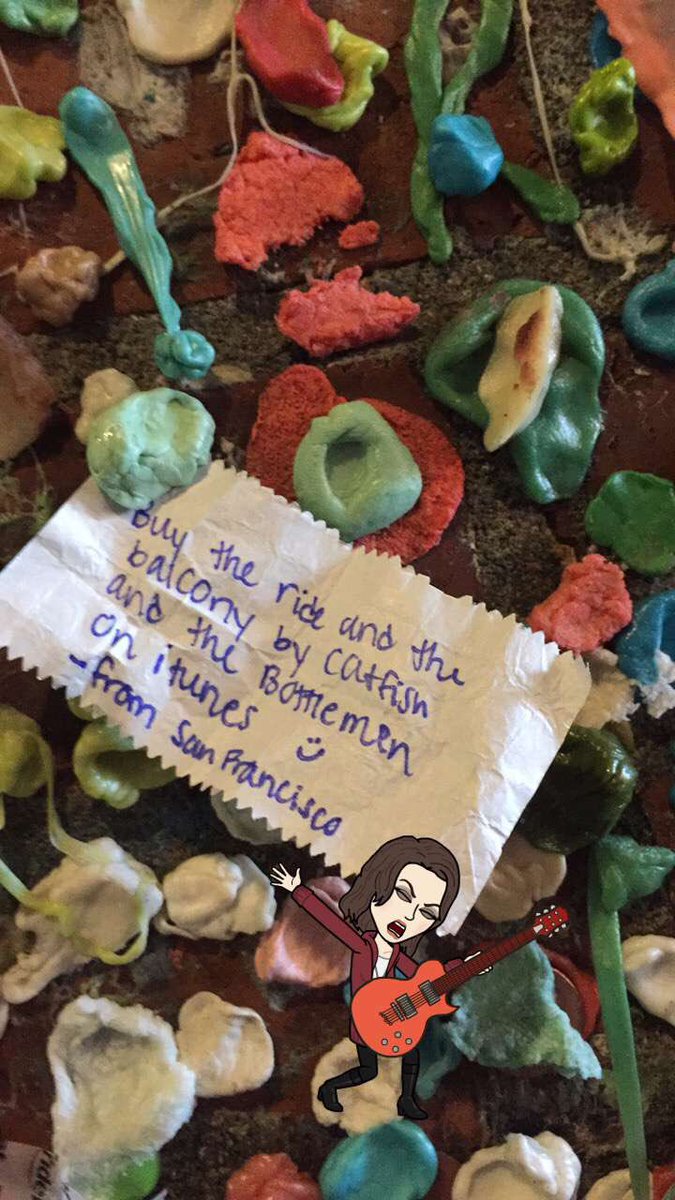 Buy the ride and the
balcony by catfish
and the Bottlemen
on itunes :)
-from San Francisco